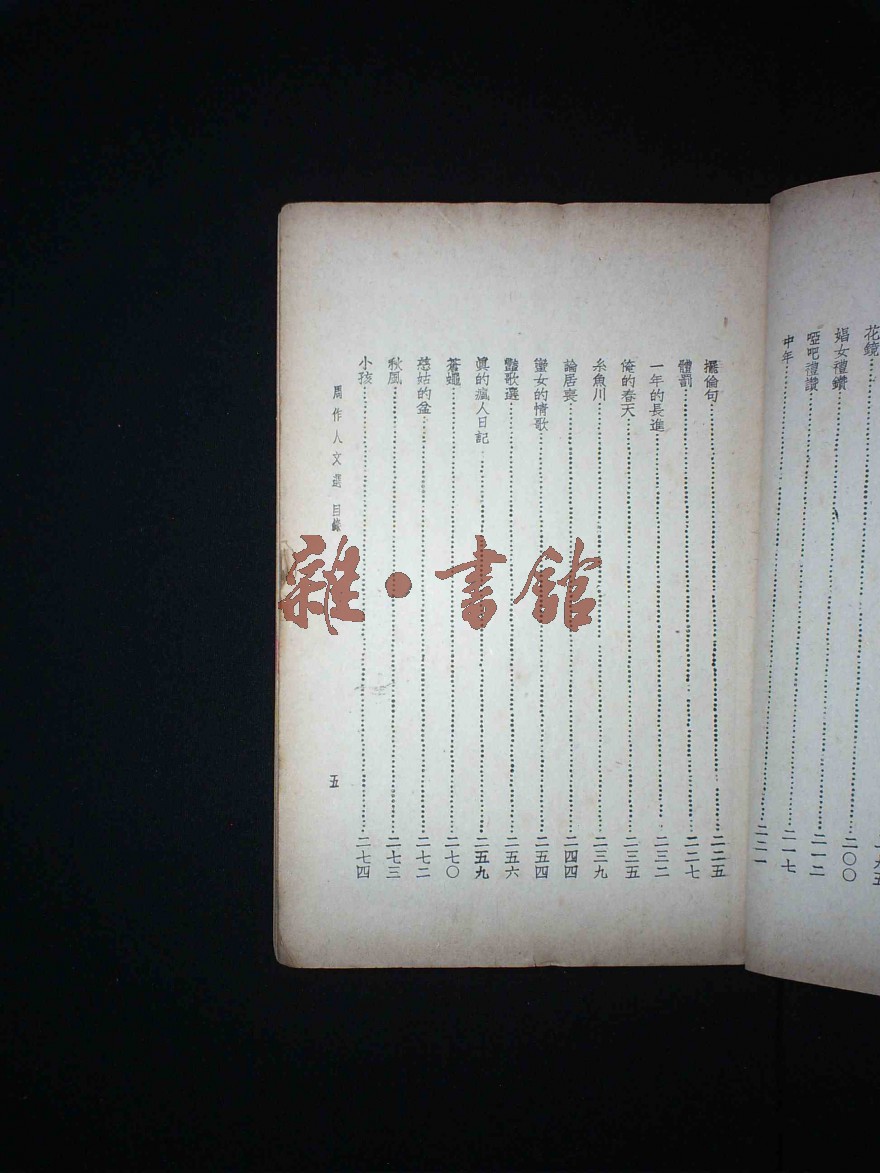 花鏡……
娼女禮讚……二〇〇
啞吧禮讚……二一二
中年……二一七
……二二一
擺倫句……二二五
體罰……二二七
一年的長進……二三二
俺的春天……二三五
糸魚川……二三九
論居喪……二四四
蠻女的情歌……二五四
豔歌選……二五六
眞的瘋人日記……二五九
蒼蠅……二七〇
慈姑的盆……二七二
秋風……二七三
小孩……二七四
周作人文選 目錄 五
雜·書館